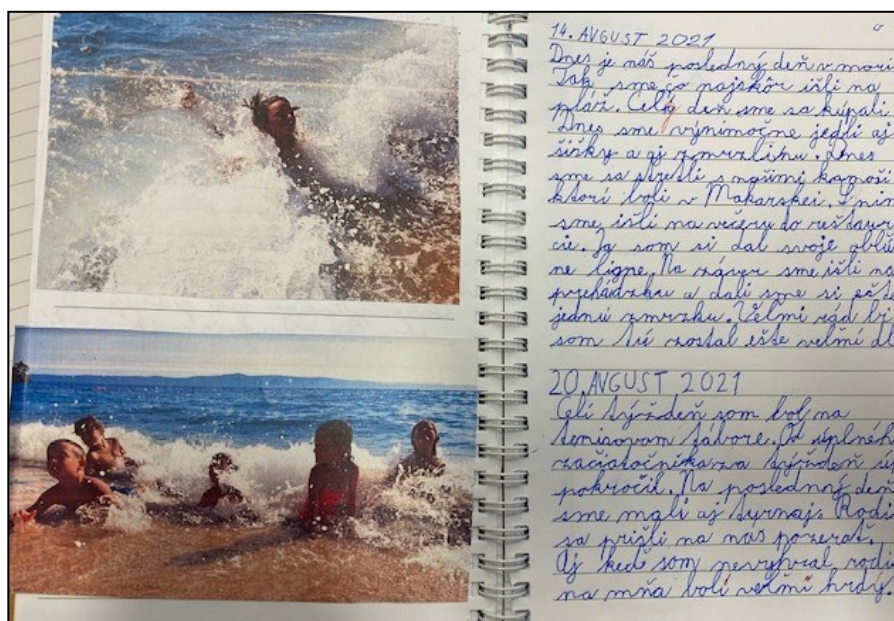 14. AVGUST 2021
Dnes je náš posledný deň v mori
Tak sme čo najskôr išli na
pláž. Celý deň sme sa kúpali.
Dnes sme výnimočne jedli aj
šišky a aj zmrzlinu. Dnes
sme sa stretli s našimi kamoši
ktorí boli v Makarskei. S nim
sme išli na večeru do reštaur
cie. Ja som si dal svoje oblú
ne ligne. Na záver sme išli na
prehádzku a dali sme si ešt
jednu zmrzku. Veľmi rád bi
som tú zostal ešte veľmi dl
20. AVGUST 2021
Celí týždeň som bol na
tenisovom tábore. Od úplnéh
začiatočníka za týždeň s
pokročil. Na poslednný deň
sme mali aj turnaj. Rodi
sa prišli na nas pozerať.
Aj keď som nevyhral rodi
na mňa bolí veľmi hrdý.